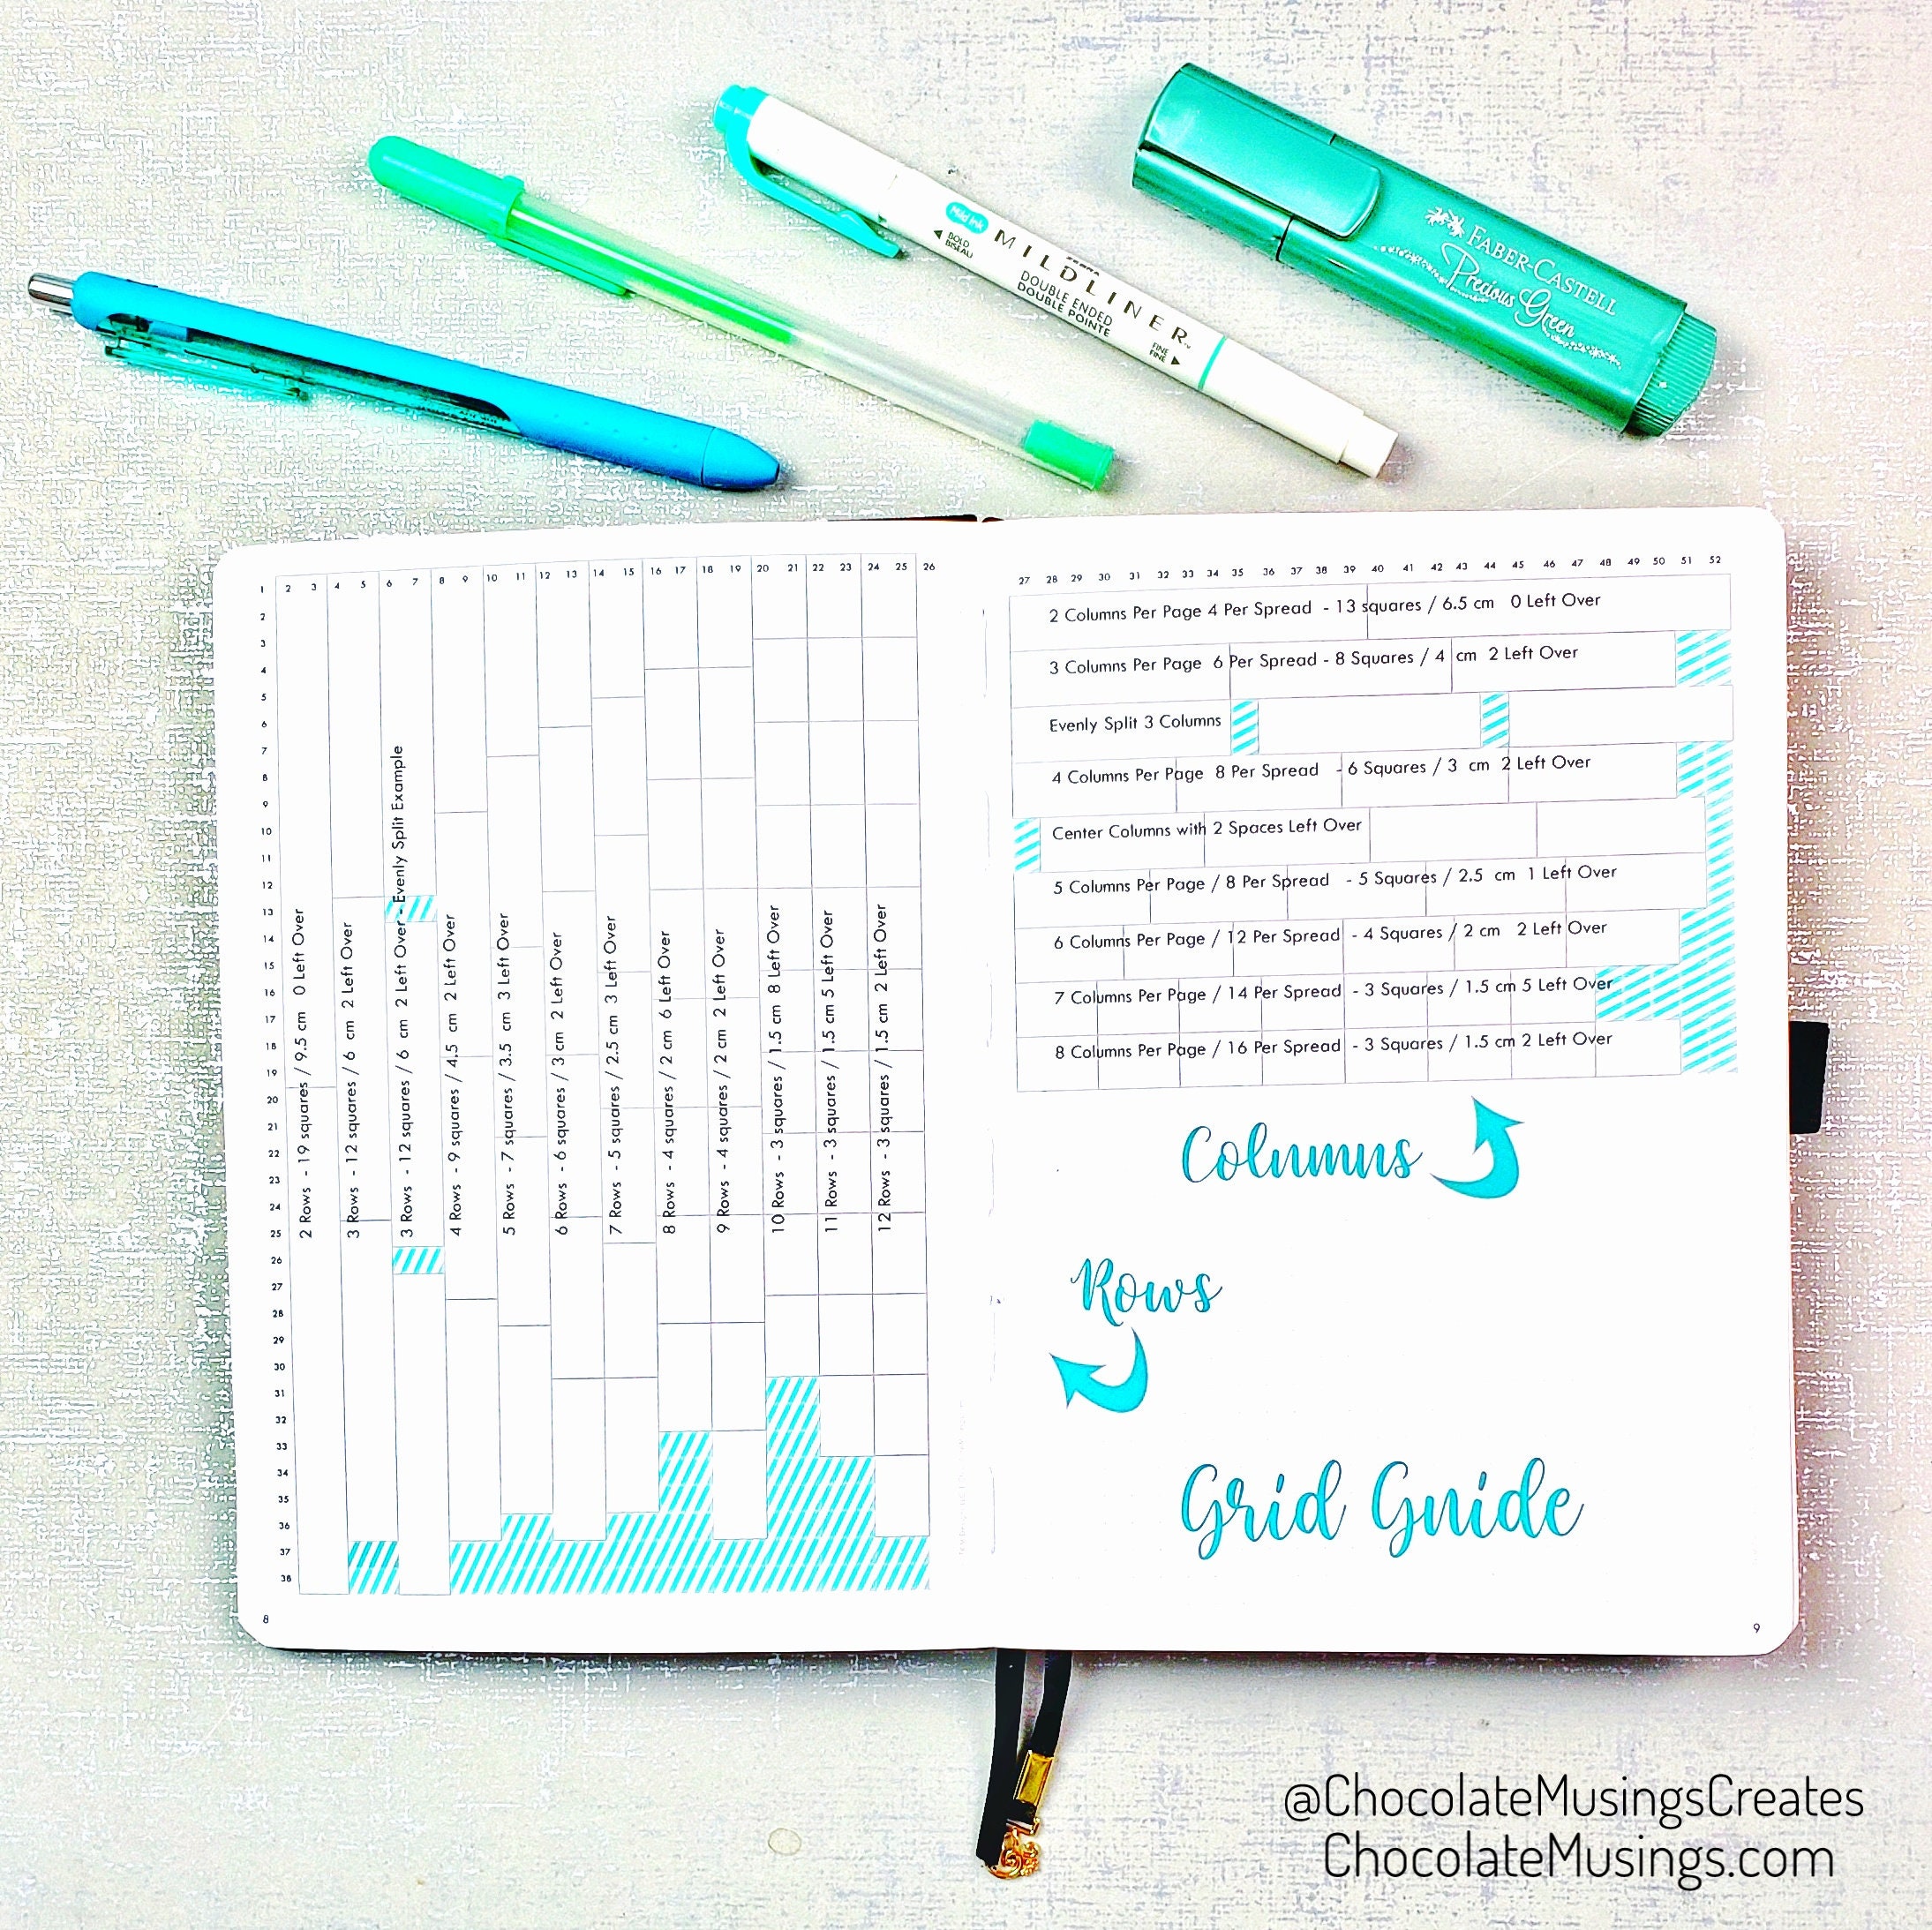 Mild Ink
BOLD
BISEAU
ZEBRA
MILDLINER™
DOUBLE ENDED
DOUBLE POINTE
FINE
FINE
FABER-CASTELL
Precious Green
1 2 3 4 5 6 7 8 9 10 11 12 13 14 15 16 17 18 19 20 21 22 23 24 25 26
2
3
4
5
6
7
8
9
10
11
12
13
14
15
16
17
18
19
20
21
22
23
24
25
26
27
28
29
30
31
32
33
34
35
36
37
38
2 Rows - 19 squares / 9.5 cm 0 Left Over
3 Rows - 12 squares / 6 cm 2 Left Over
3 Rows - 12 squares / 6 cm 2 Left Over - Evenly Split Example
4 Rows - 9 squares / 4.5 cm 2 Left Over
5 Rows - 7 squares / 3.5 cm 3 Left Over
6 Rows - 6 squares / 3 cm 2 Left Over
7 Rows - 5 squares / 2.5 cm 3 Left Over
8 Rows - 4 squares / 2 cm 6 Left Over
9 Rows - 4 squares / 2 cm 2 Left Over
10 Rows - 3 squares / 1.5 cm 8 Left Over
11 Rows - 3 squares / 1.5 cm 5 Left Over
12 Rows - 3 squares / 1.5 cm 2 Left Over
8
27 28 29 30 31 32 33 34 35 36 37 38 39 40 41 42 43 44 45 46 47 48 49 50 51 52
2 Columns Per Page 4 Per Spread - 13 squares / 6.5 cm 0 Left Over
3 Columns Per Page 6 Per Spread - 8 Squares / 4 cm 2 Left Over
Evenly Split 3 Columns
4 Columns Per Page 8 Per Spread - 6 Squares / 3 cm 2 Left Over
Center Columns with 2 Spaces Left Over
5 Columns Per Page / 8 Per Spread - 5 Squares / 2.5 cm 1 Left Over
6 Columns Per Page / 12 Per Spread - 4 Squares / 2 cm 2 Left Over
7 Columns Per Page / 14 Per Spread - 3 Squares / 1.5 cm 5 Left Over
8 Columns Per Page / 16 Per Spread - 3 Squares / 1.5 cm 2 Left Over
Columns
Rows
Grid Guide
9
@ChocolateMusingsCreates
ChocolateMusings.com